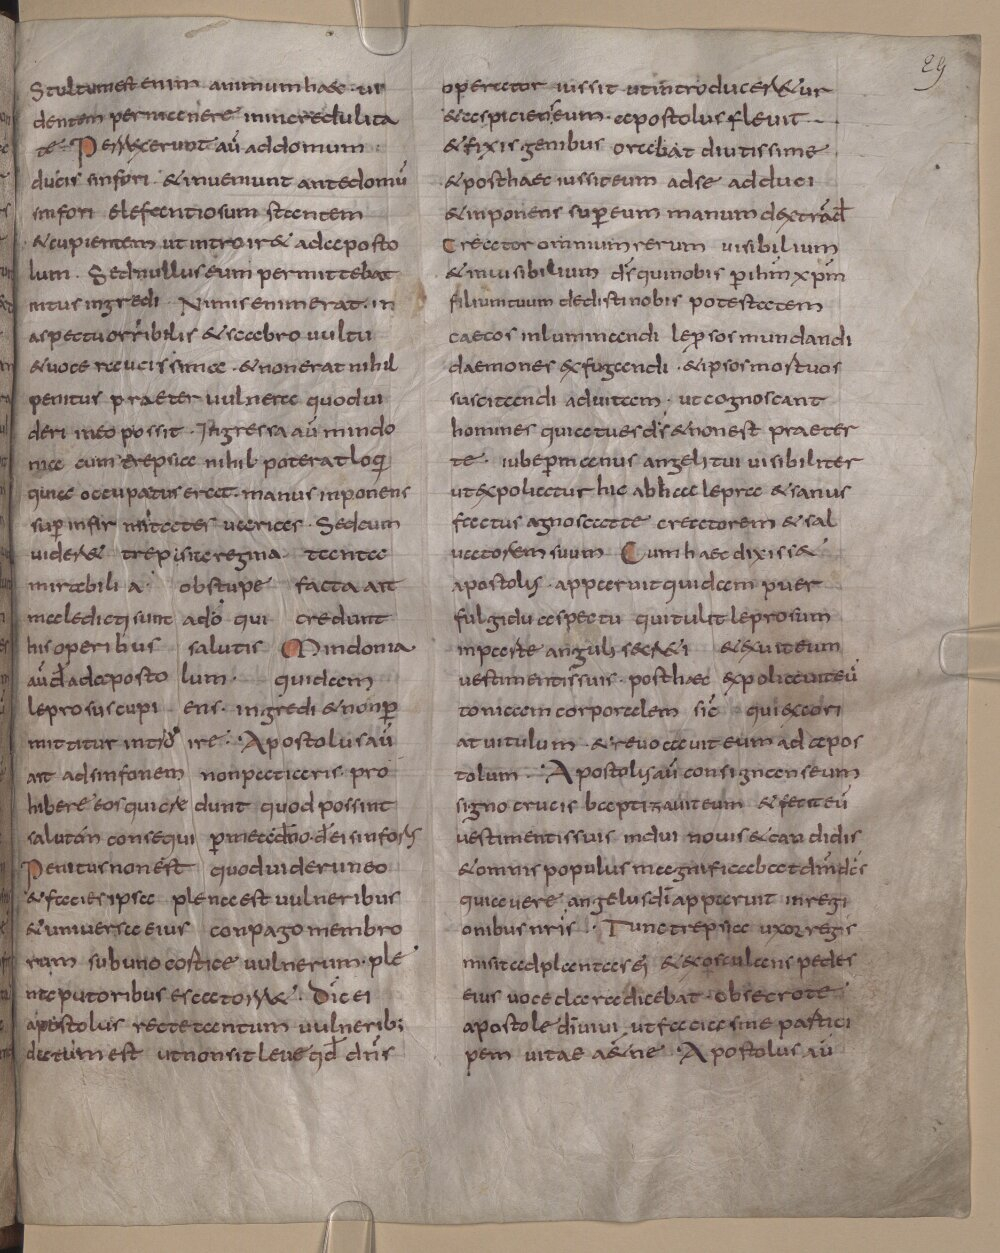 29
Stultum est enim animum haec vi
dentem permanere inincredulita
te Perrexerunt aū addomum
ducis sinfori & inveniunt antedomū
sinfori elefantiosum stantem
& cupientem ut introir& adaposto
lum. Sed nullus eum permittebat
intus ingredi Nimis enim erat. in
aspectu orribilis & scabro vultu
& voce raucissima & non erat nihil
penitus praeter vulnera quod vi
deri in eo possit. Ingressa aū mindo
nia cum trepsia nihil poterat loqi
quia occupatus erat. manus inponens
sup infirmitates varices. Sed cum
vider& trepsia regina tanta
mirabilia obstupefacta ait
maledicti sunt a dō qui credunt
his operibus salutis Mindonia
aū d adaposto lum. quidam
leprosus cupi ens. ingredi & nonp
mittitur intro ire. Apostolus aū
ait adsinfonem non patiaris pro
hibere eos qui cre dunt quod possint
salutān consequi
Penitus non est quod vider in eo
& facies ipsa plena est vulneribus
& universa eius conpago membro
rum sub uno costice vulnerum. ple
na putoribus
apostolus recte tantum vulnerib;
datum est ut non sit leve qd dn̄s
operator iussit ut introducer&ur
& aspiciens eum. apostolus flevit
& fixis genibus orabat diutissime
& posthaec iussit eum ad se adduci
& inponens super eum manum dextrā d
Creator omnium rerum visibilium
& invisibilium ds qui nobis p ihm xpm
filium tuum dedisti nobis potestatem
caecos inluminandi leprosos mundandi
daemones exfugandi. & ipsos mostuos
suscitandi ad vitam. ut cognoscant
homines quia tu es ds & non est praeter
te. iube p manus angeli tui visibiliter
ut expoliatur hic ab hac lepra & sanus
factus agnoscat te creatorem & sal
vatorem suum Cum haec dixiss&
apostolis. apparuit quidam puer
fulgidu aspectu qui tulit leprosum
in parte anguli & exuit eum
vestimentis suis. post haec expoliavit eū
tonicam corporalem sic qui excori
at vitulum. & revocavit eum ad apos
tolum. Apostolis aū consignans eum
signo crucis baptizavit eum & fecit eū
vestimentis suis indui novis & candidis
& omnis populus magnificabat dm̄ dices
quia vere angelus dī apparuit in regi
onibus nris. Tunc trepsia uxor regis
misit ad plantas ei & exosculans pedes
eius voce clara dicebat. obsecro te
apostole di vivi ut facias me partici
pem vitae a&ne. Apostolus aū